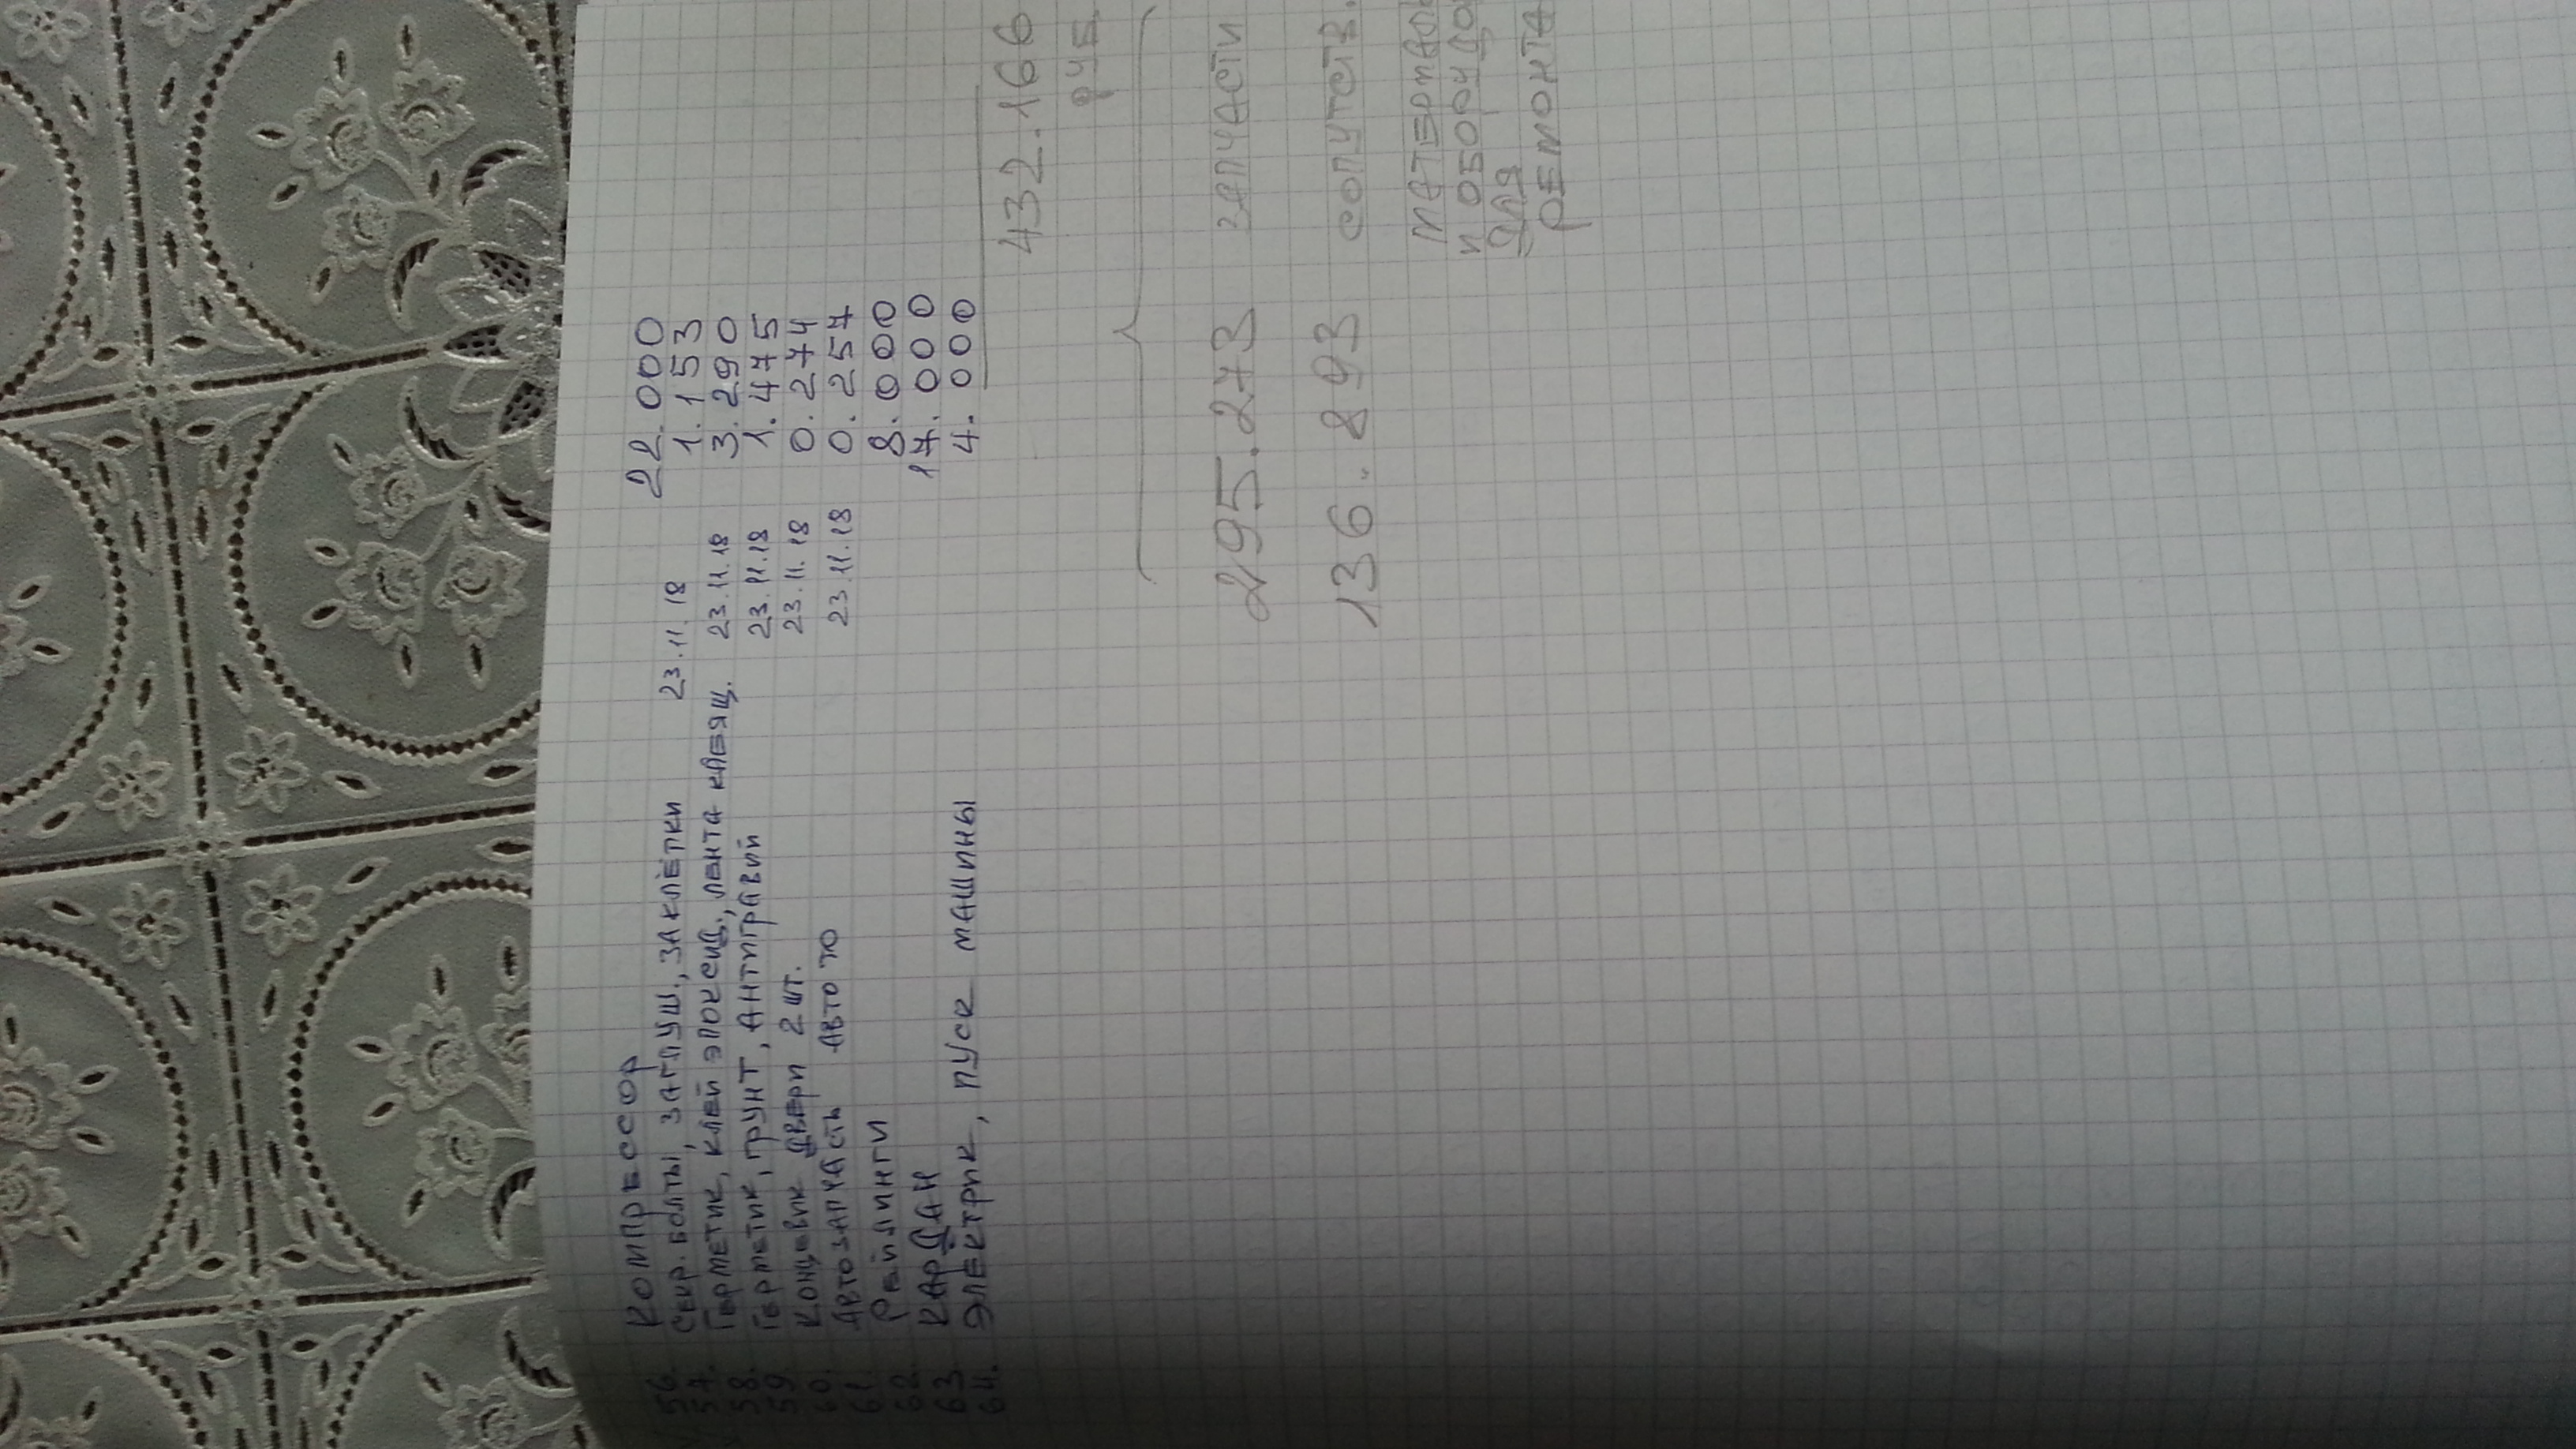 56. Компрессор 22.000
57. Скир. болты, заглуш., заклёпки 23.11.18 1.153
58. Герметик, клей эпоксид., лента клеящ. 23.11.18 3.290
59. Герметик, грунт, антигравий 23.11.18 1.475
60. Концевик двери 2 шт. 23.11.18 0.274
61. Автозапчасть Авто 70 23.11.18 0.257
62. Рейлинги 8.000
63. Кардан 17.000
64. Электрик, пуск машины 4.000
432.166
руб
295.273 запчасти
136.893 сопутств.
материал
и оборудо
для
ремонта